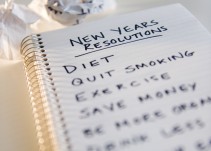 NEW YEARS
RESOLUTIONS
DIET
QUIT SMOKING
EXERCISE
SAVE MONEY
BE MORE
LESS